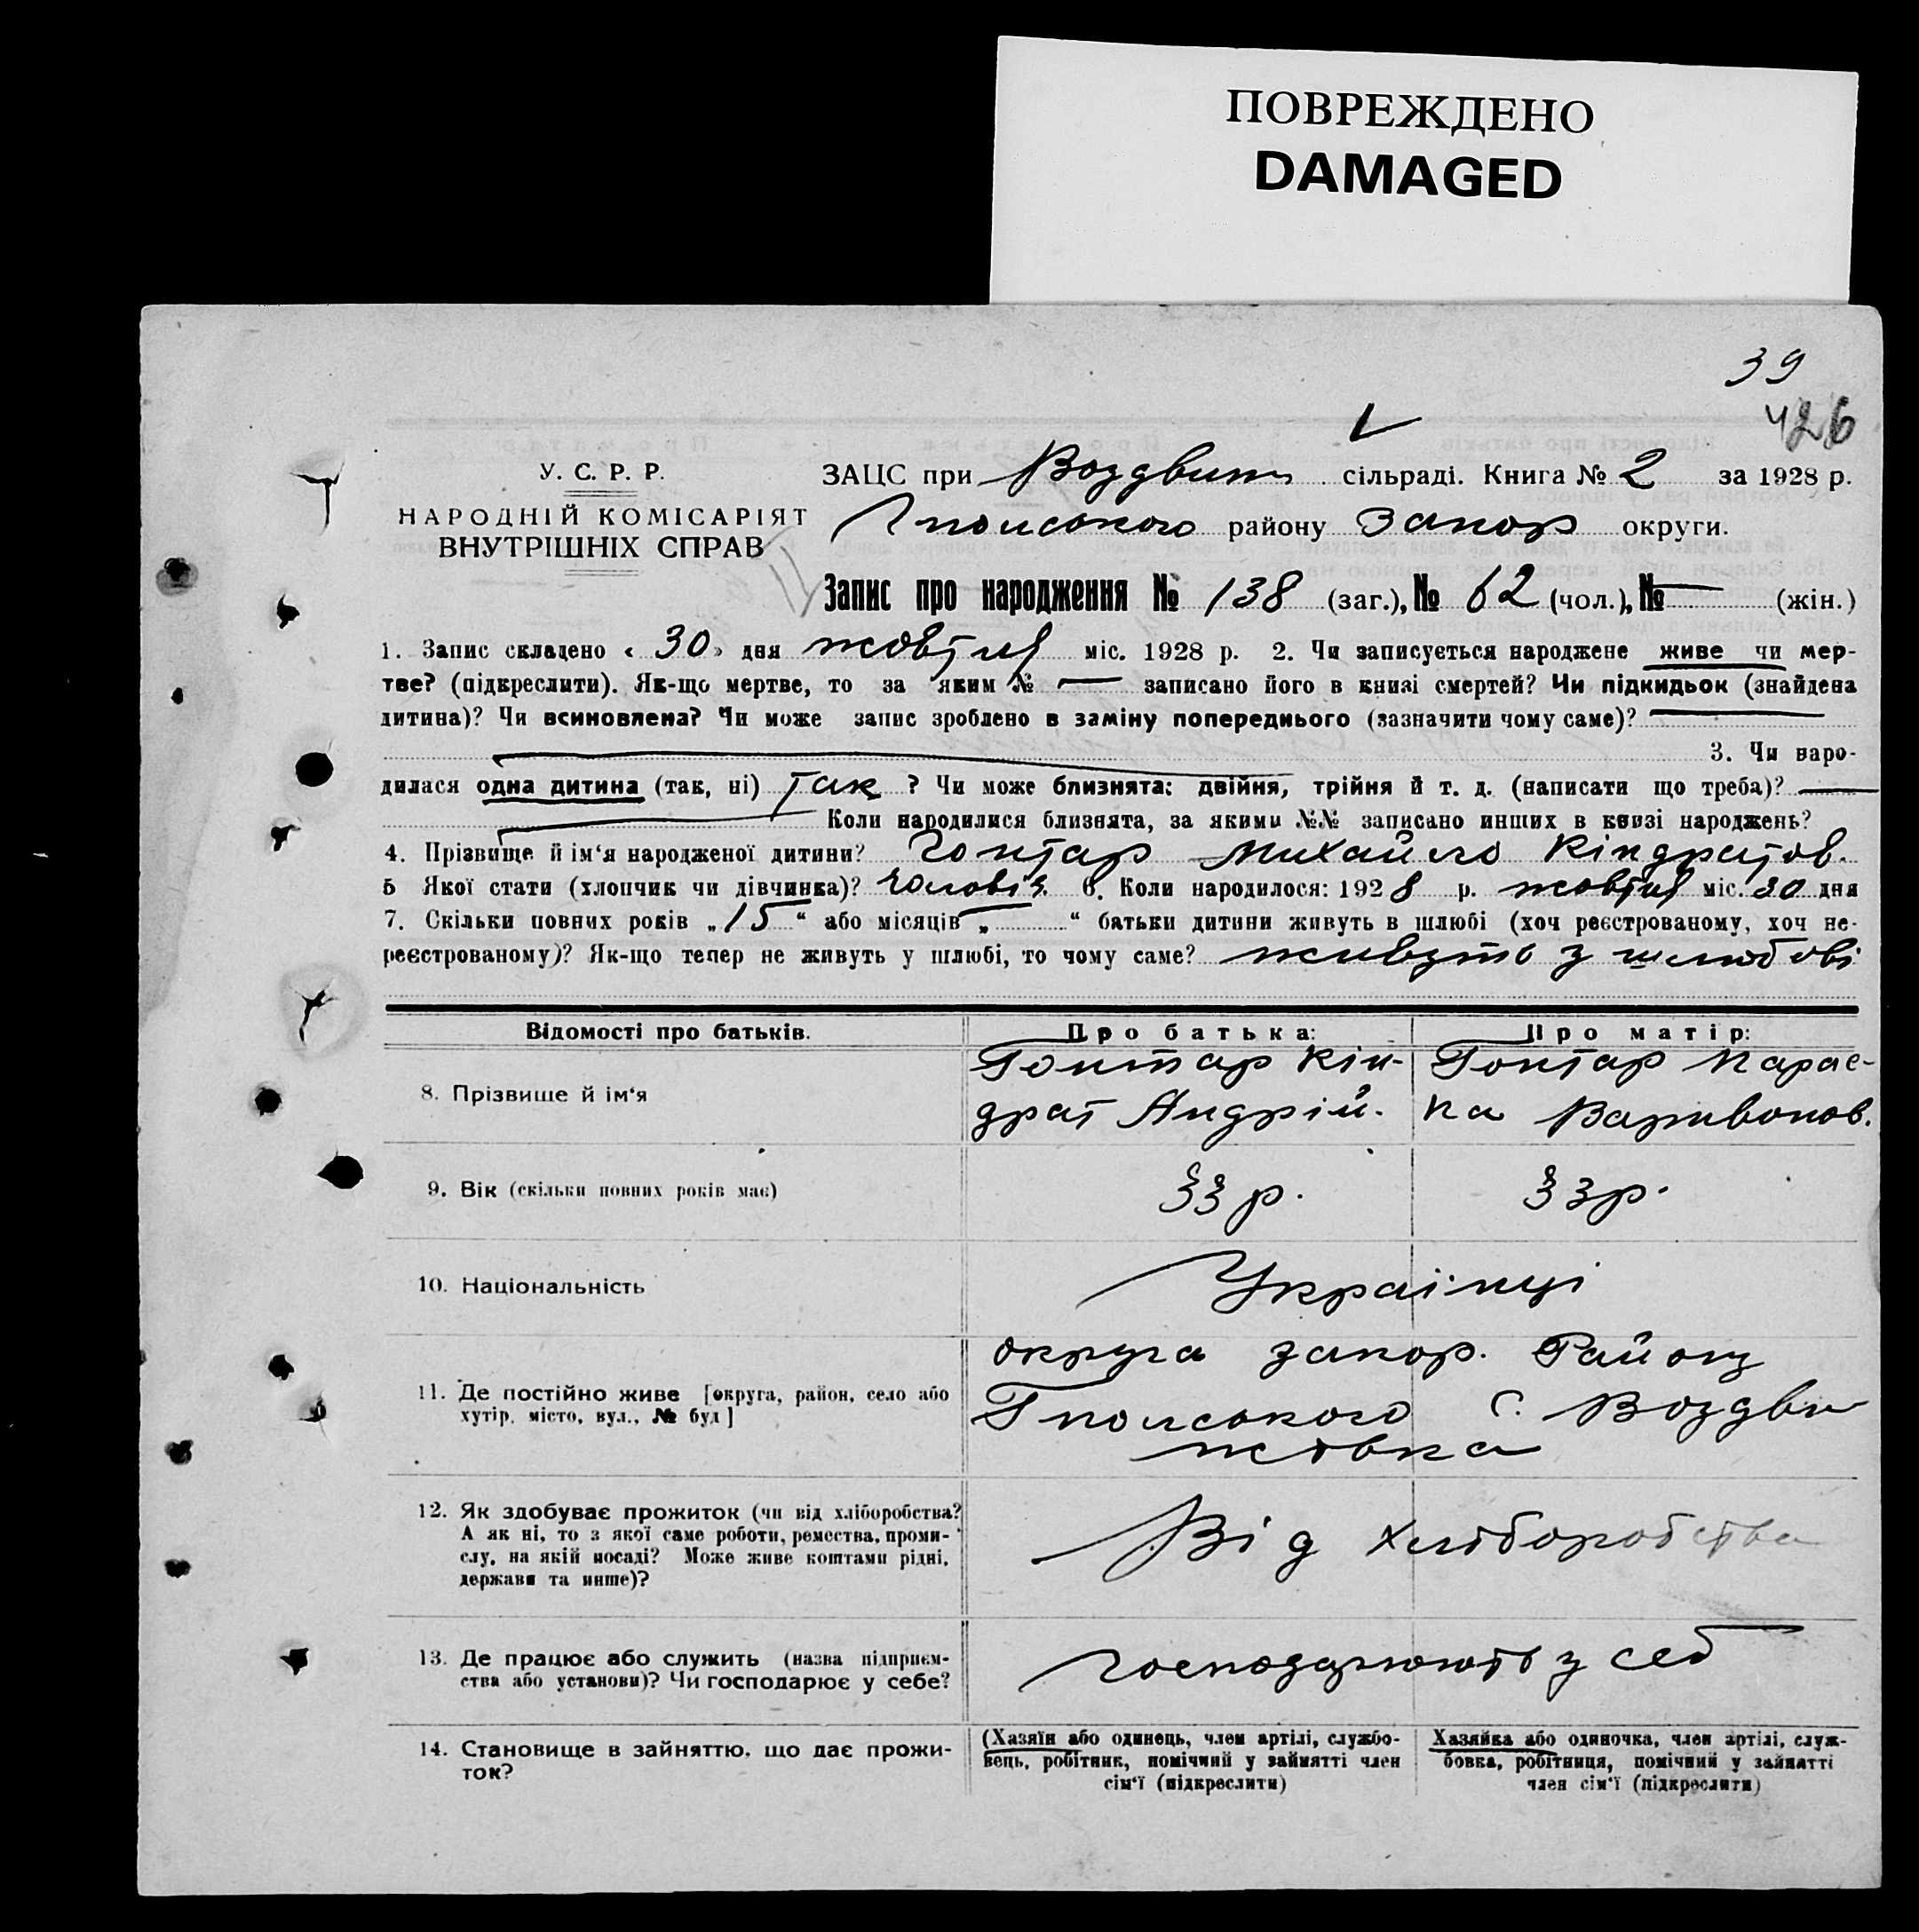 ПОВРЕЖДЕНО
DAMAGED
39
426
У. С. Р. Р.
НАРОДНІЙ КОМІСАРІЯТ
ВНУТРІШНІХ СПРАВ
ЗАЦС при Воздвиж сільраді. Книга № 2 за 1928 р.
Гполського району Запор округи.
Запис про народження № 138 (заг.), № 62 (чол.), № — (жін.)
1. Запис складено « 30 » дня жовтня міс. 1928 р. 2. Чи записується народжене живе чи мер-
тве? (підкреслити). Як-що мертве, то за яким № — записано його в книзі смертей? Чи підкидьок (знайдена
дитина)? Чи всиновлена? Чи може запис зроблено в заміну попереднього (зазначити чому саме)? —
3. Чи наро-
дилася одна дитина (так, ні) Так ? Чи може близнята: двійня, трійня й т. д. (написати що треба)? —
Коли народилися близнята, за якими №№ записано инших в книзі народжень?
4. Прізвище й ім‘я народженої дитини? Гонтар Михайло Кіндратов.
5 Якої стати (хлопчик чи дівчинка)? чоловіч. 6. Коли народилося: 1928 р. жовтня міс. 30 дня
7. Скільки повних років „ 15 “ або місяців „ — “ батьки дитини живуть в шлюбі (хоч реєстрованому, хоч не-
реєстрованому)? Як-що тепер не живуть у шлюбі, то чому саме? живуть у шлюбові
Відомості про батьків.
Про батька:
Про матір:
8. Прізвище й ім‘я
Гонтар Кін-
драт Андрій.
Гонтар Парас-
ка Варивонов.
9. Вік (скільки повних років має)
33 р.
33 р.
10. Національність
Українці
11. Де постійно живе [округа, район, село або
хутір, місто, вул., № буд]
округа запор. Району
Гполського с. Воздви
жовка
12. Як здобуває прожиток (чи від хліборобства?
А як ні, то з якої саме роботи, ремества, проми-
слу, на якій посаді? Може живе коштами рідні,
держави та инше)?
Від хліборобства
13. Де працює або служить (назва підприєм-
ства або установи)? Чи господарює у себе?
господарюють у себ
14. Становище в зайняттю, що дає прожи-
ток?
(Хазяїн або одинець, член артілі, службо-
вець, робітник, помічний у зайнятті член
сім‘ї (підкреслити)
Хазяйка або одиночка, член артілі, служ-
бовка, робітниця, помічний у зайнятті
член сім‘ї (підкреслити)